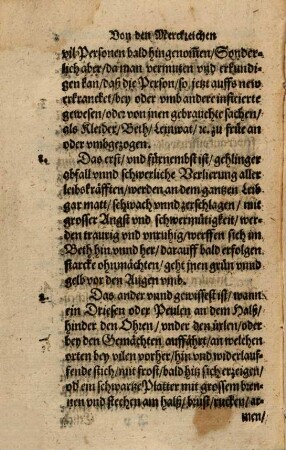 Von den Merckzeichen
vil Personen bald hingenommen/ Sonder-
lich aber/ da man vermuten vnd erkundi-
gen kan/ daß die Person/ so jetzt auffs new
erkrancket/ bey oder vmb andere inficierte
gewesen/ oder von jnen gebrauchte sachen/
als Kleider/ Beth/ Leinwat/ ꝛc. zu früe an
oder vmbgezogen.
1. Das erst/ vnd fürnembst ist/ gehlinger
abfall vnnd schwerliche Verlierung aller
leibskräfften/ werden an dem gantzen Leib
gar matt/ schwach vnnd zerschlagen/ mit
grosser Angst vnd schwermütigkeit/ wer-
den traurig vnd vnruhig/ werffen sich im
Beth hin vnnd her/ darauff bald erfolgen
starcke ohnmächten/ geht jnen grün vnnd
gelb vor den Augen vmb.
2. Das ander vnnd gewissest ist/ wann
ein Driesen oder Peulen an dem Halß/
hinder den Ohren/ vnder den üxen/ oder
bey den Gemächten auffährt/ an welchen
orten bey vilen vorher/ hin vnd widerlauf-
fende stich/ mit frost/ bald hitz sich erzeigen/
od ein schwartze Platter mit grossem bren-
nen vnd stechen am halß/ brust/ rucken/ ar-
men/